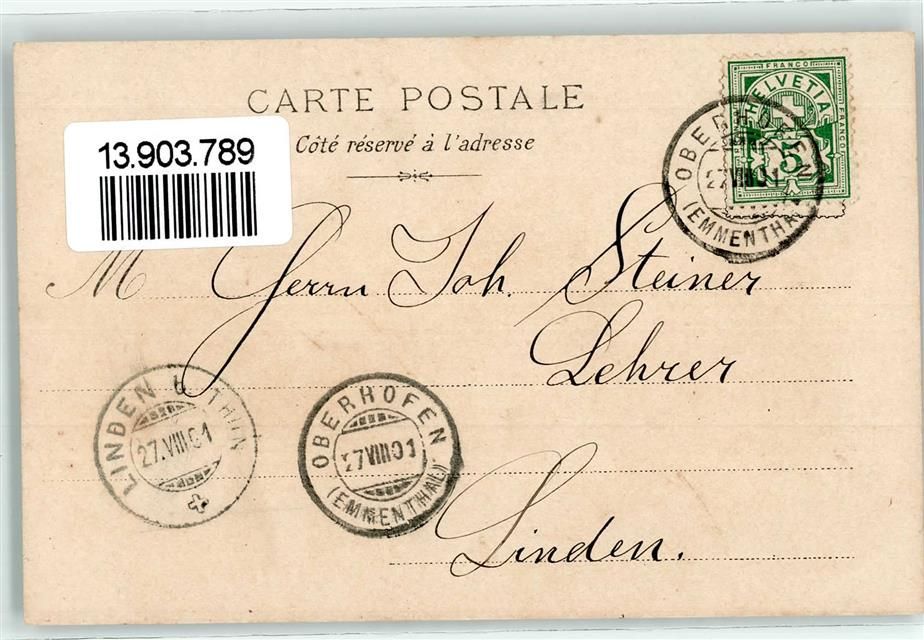 CARTE POSTALE
Côté réservé à l'adresse
13.903.789
FRANCO
HELVETIA
FRANCO
5
OBERHOFEN
27.VIII.01
(EMMENTHAL)
M Herrn Joh. Steiner
Lehrer
LINDEN b/THUN
27.VIII.01
OBERHOFEN
27VIII01
(EMMENTHAL)
Linden.